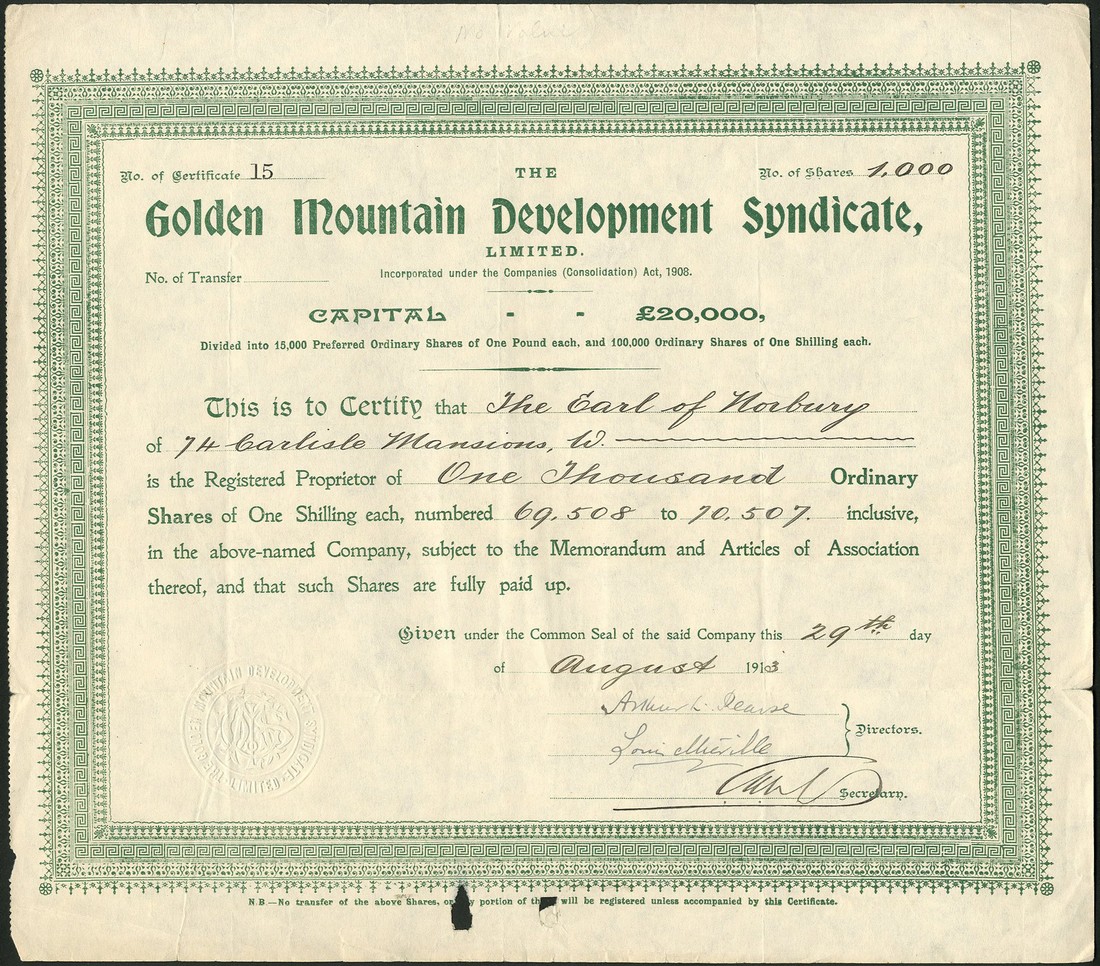 No value
No. of Certificate 15
THE
No. of Shares 1,000
Golden Mountain Development Syndicate,
LIMITED.
No. of Transfer
Incorporated under the Companies (Consolidation) Act, 1908.
CAPITAL - - £20,000,
Divided into 15,000 Preferred Ordinary Shares of One Pound each, and 100,000 Ordinary Shares of One Shilling each.
This is to Certify that The Earl of Norbury
of 74 Carlisle Mansions, W.
is the Registered Proprietor of One Thousand Ordinary
Shares of One Shilling each, numbered 69,508 to 70,507. inclusive,
in the above-named Company, subject to the Memorandum and Articles of Association
thereof, and that such Shares are fully paid up.
Given under the Common Seal of the said Company this 29th day
of August 1913
Arthur L. Pearse
Louis Miéville
Directors.
Secretary.
THE GOLDEN MOUNTAIN DEVELOPMENT SYNDICATE LIMITED
N.B—No transfer of the above Shares, or portion of will be registered unless accompanied by this Certificate.